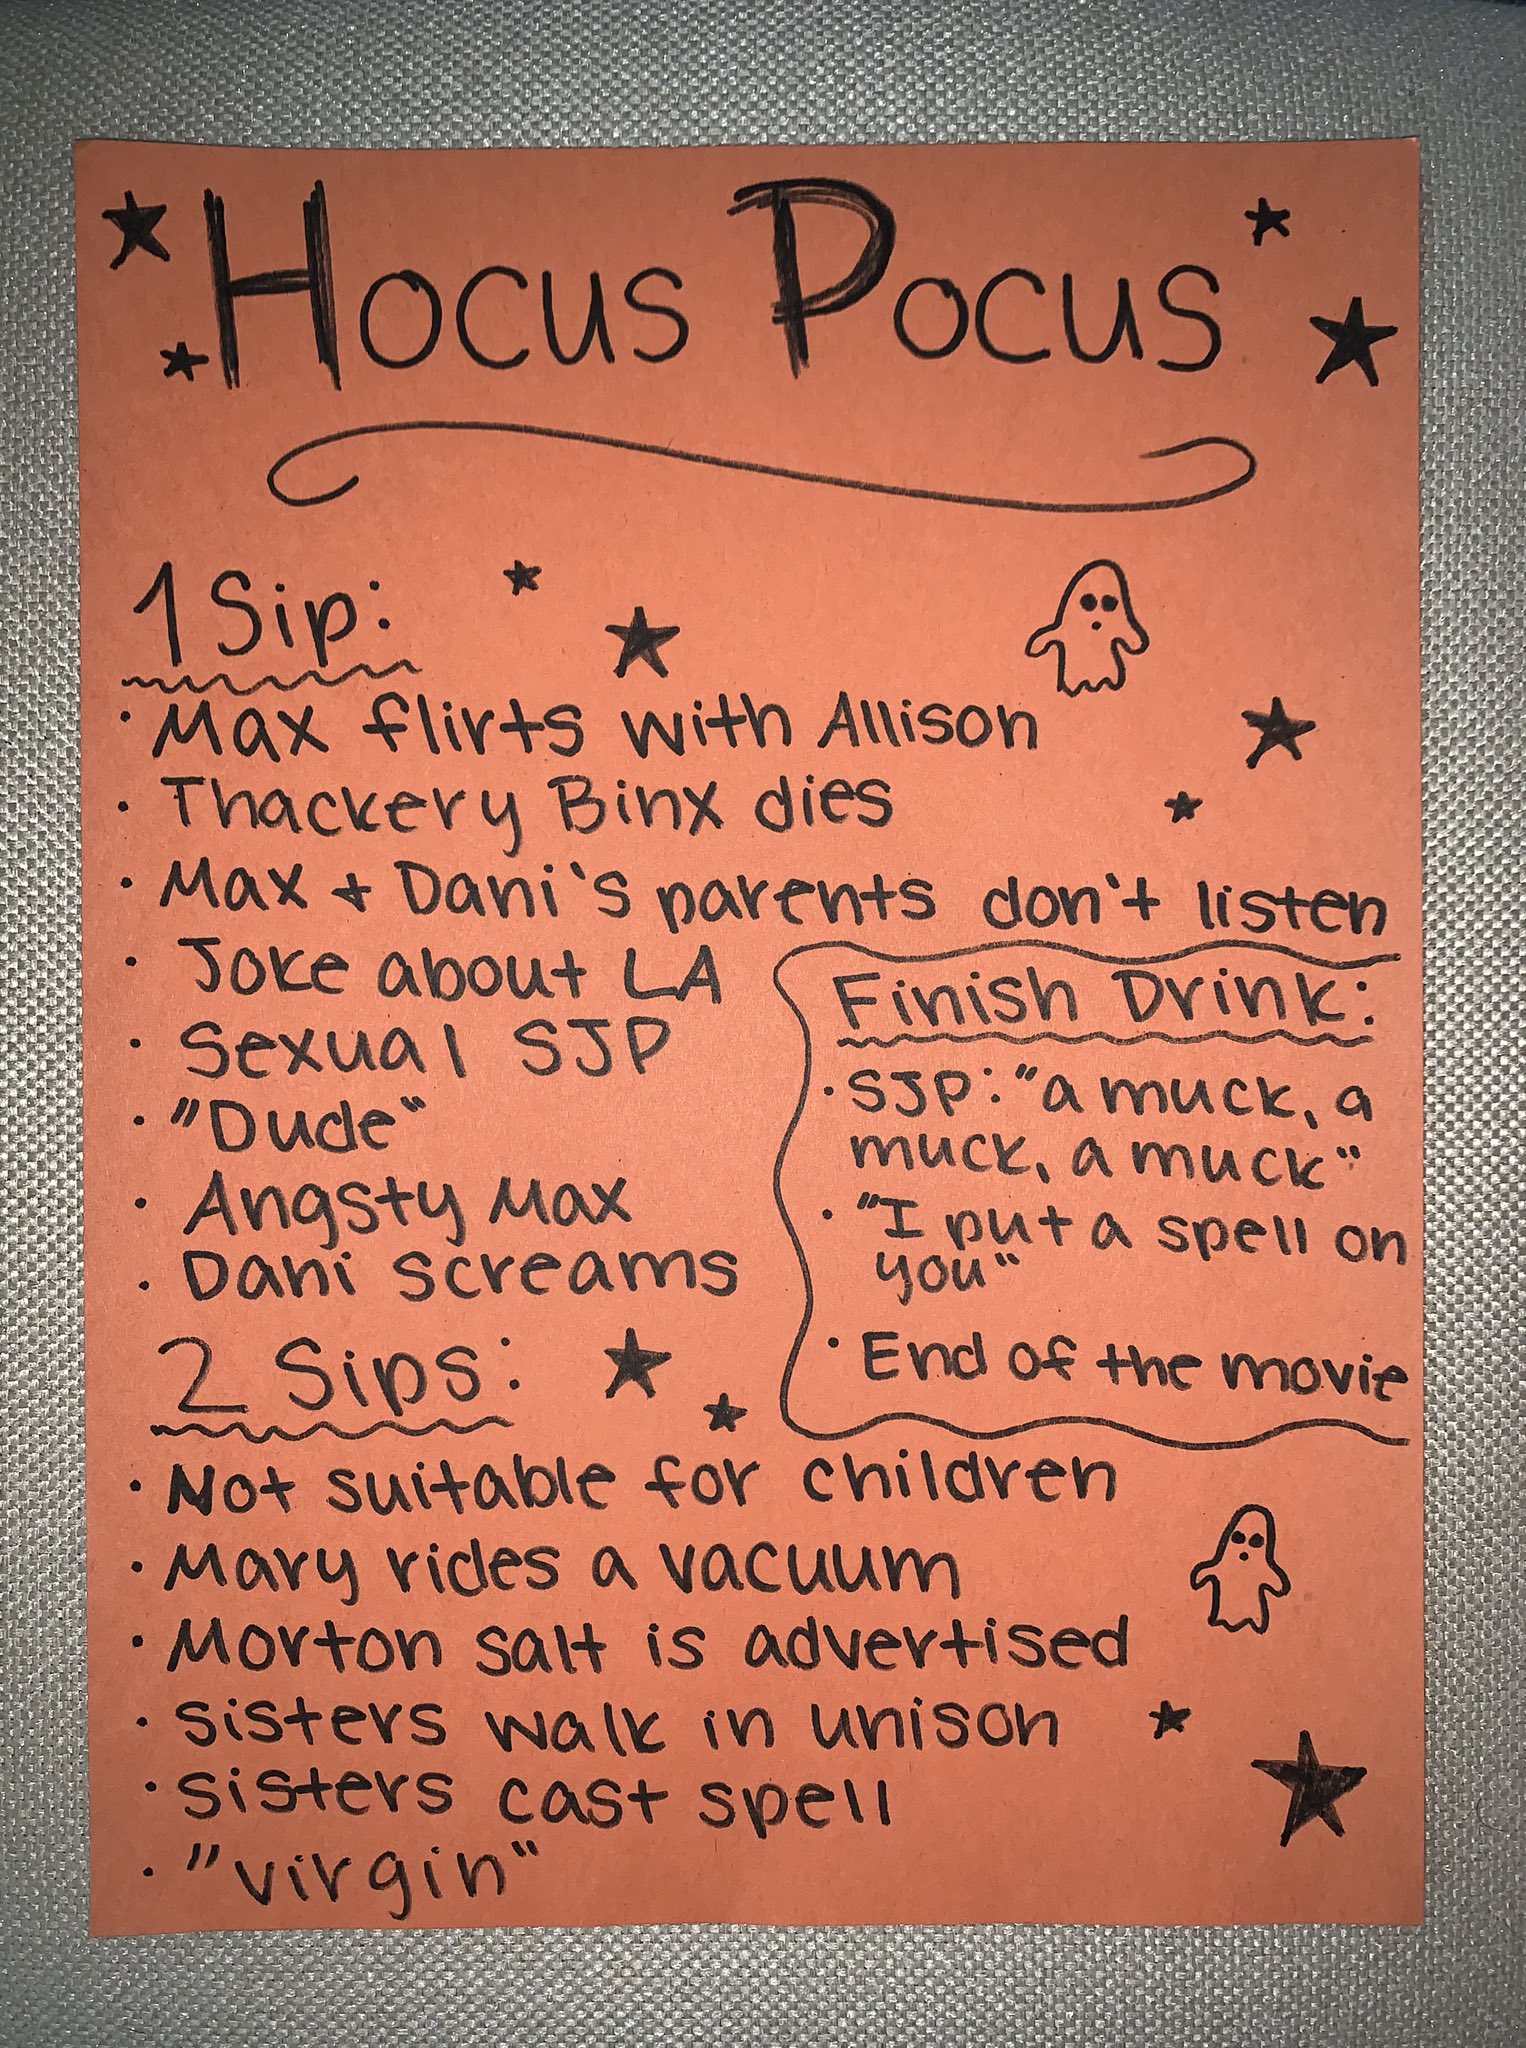 Hocus Pocus
1 Sip:
· Max flirts with Allison
· Thackery Binx dies
· Max + Dani's parents don't listen
· Joke about LA
· Sexual SJP
· "Dude"
· Angsty Max
· Dani screams
Finish Drink:
· SJP: "a muck, a
muck, a muck"
· "I put a spell on
you"
· End of the movie
2 Sips:
· Not suitable for children
· Mary rides a vacuum
· Morton salt is advertised
· sisters walk in unison
· sisters cast spell
· "virgin"